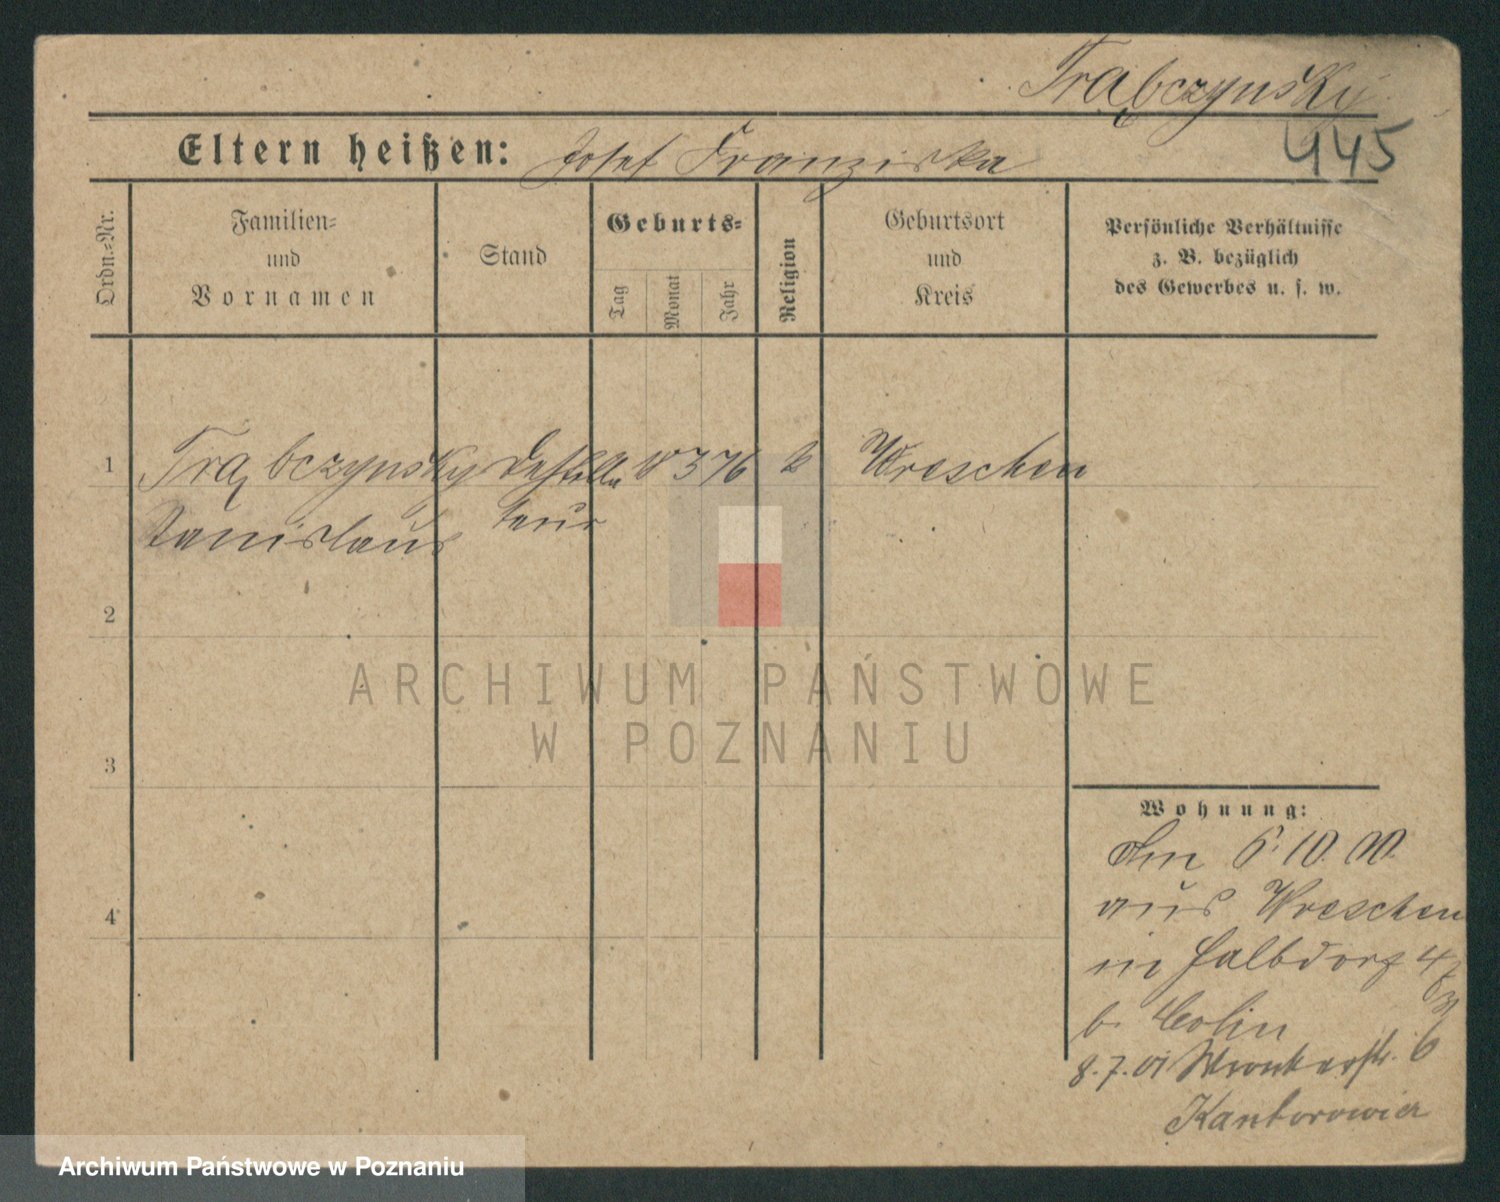 Trąbczynsky
445
Eltern heißen: Josef Franziska
Ordn.=Nr.
Familien=
und
Vornamen
Stand
Geburts=
Tag
Monat
Jahr
Religion
Geburtsort
und
Kreis
Persönliche Verhältnisse
z. B. bezüglich
des Gewerbes u. s. w.
1 Trąbczynsky Destilla 3 76 k Wreschen
Stanislaus teur
2
ARCHIWUM PAŃSTWOWE
W POZNANIU
3
Wohnung:
6. 10. 00.
aus Wreschen
in Halbdorf 4
b. Colin
8.7.01 Wronkerstr. 6
Kantorowicz
4
Archiwum Państwowe w Poznaniu